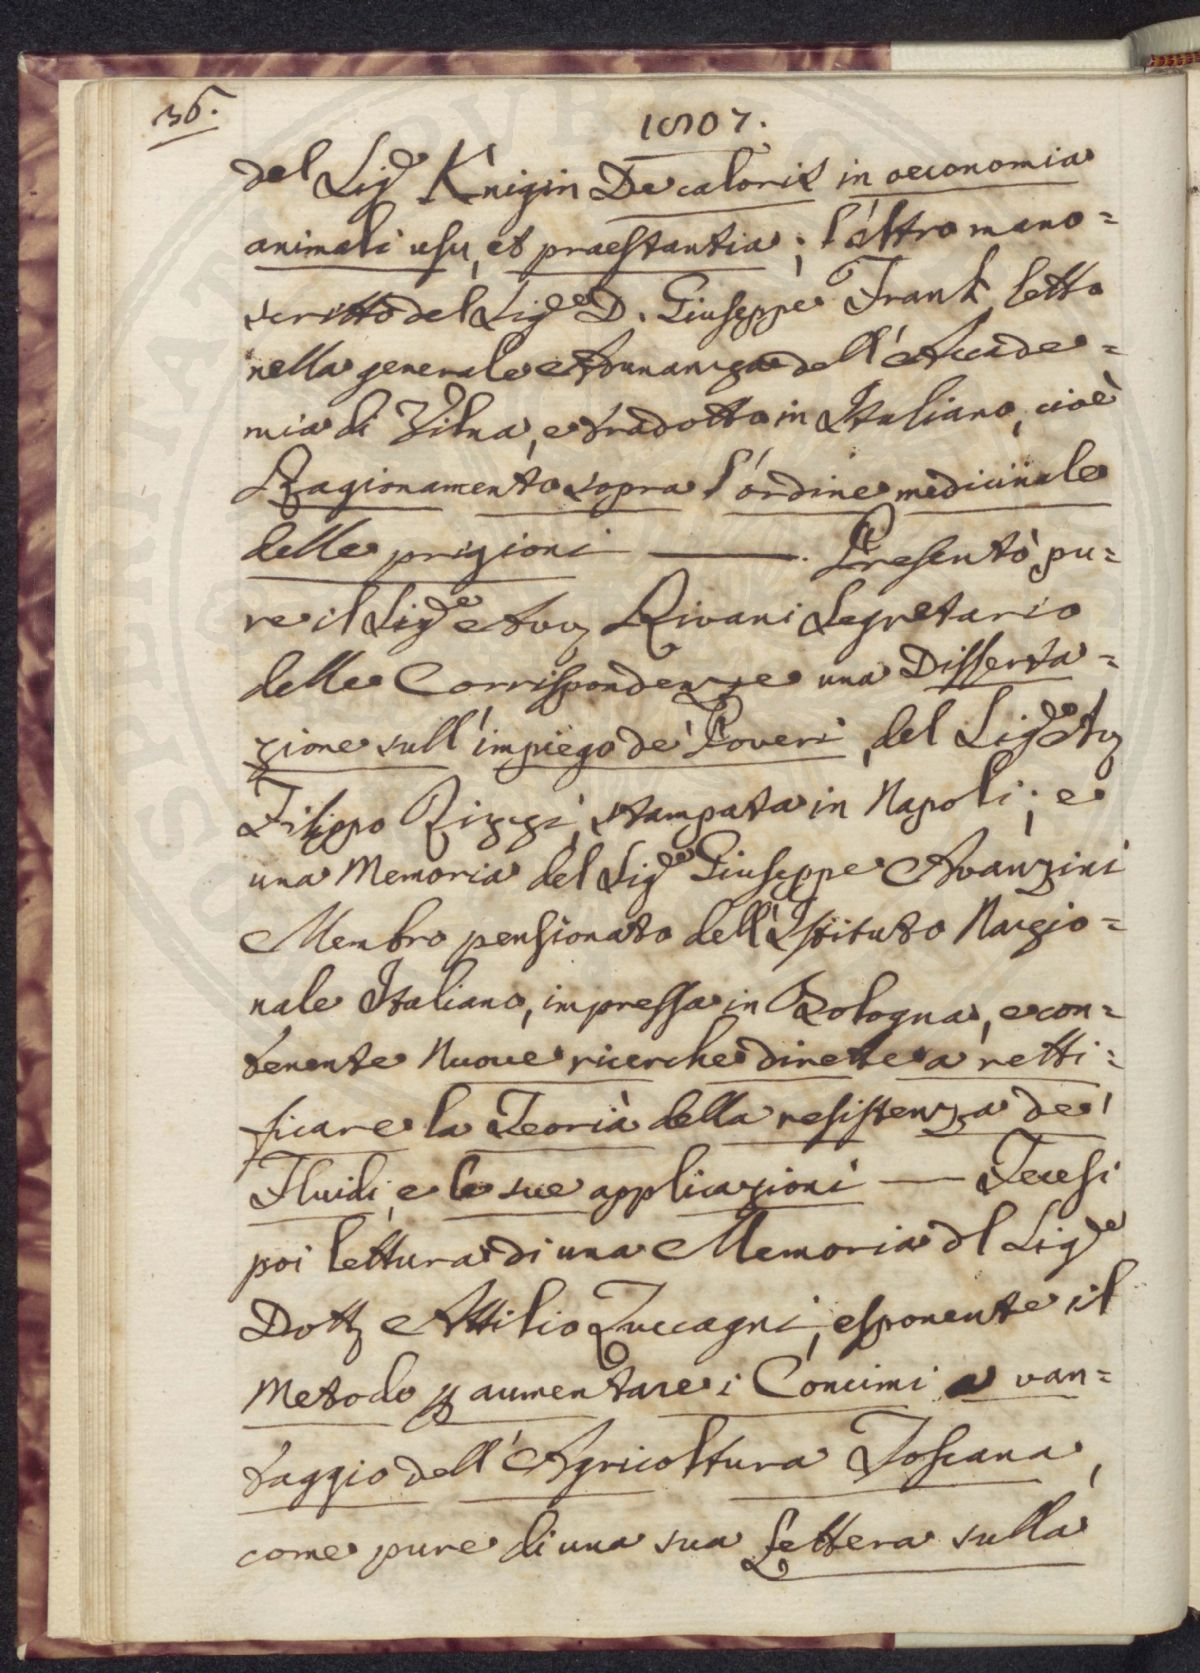 36.
1807.
del Sig.e Knigin De caloris in oeconomia
animali usu, et praestantia; l'altro mano=
scritto del Sig.e D. Giuseppe Frank letto
nella generale Adunanza dell'Accade=
mia di Vilna, e tradotto in Italiano, cioè
Ragionamento sopra l'ordine medicinale
delle prigioni ——. Presentò pu=
re il Sig.e Avv. Rivani Segretario
delle Corrispondenze una Disserta=
zione sull'impiego de' Poveri, del Sig.e Av.
Filippo Rizzi, stampata in Napoli; e
una Memoria del Sig.e Giuseppe Avanzini
Membro pensionato dell'Istituto Nazio=
nale Italiano, impressa in Bologna, e con=
tenente Nuove ricerche dirette a retti=
ficare la Teoria della resistenza de'
Fluidi, e le sue applicazioni — Fecesi
poi lettura di una Memoria dl Sig.e
Dott. Attilio Zuccagni, esponente il
Metodo p aumentare i Concimi a van=
taggio dell'Agricoltura Toscana,
come pure di una sua Lettera sulla